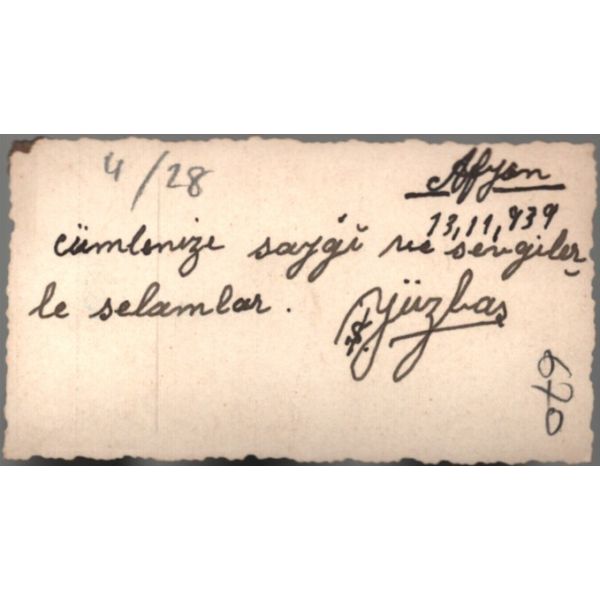 4/28
Afyon
13,11,939
cümlenize saygı ve sevgiler
le selamlar.
Yüzbaş
670